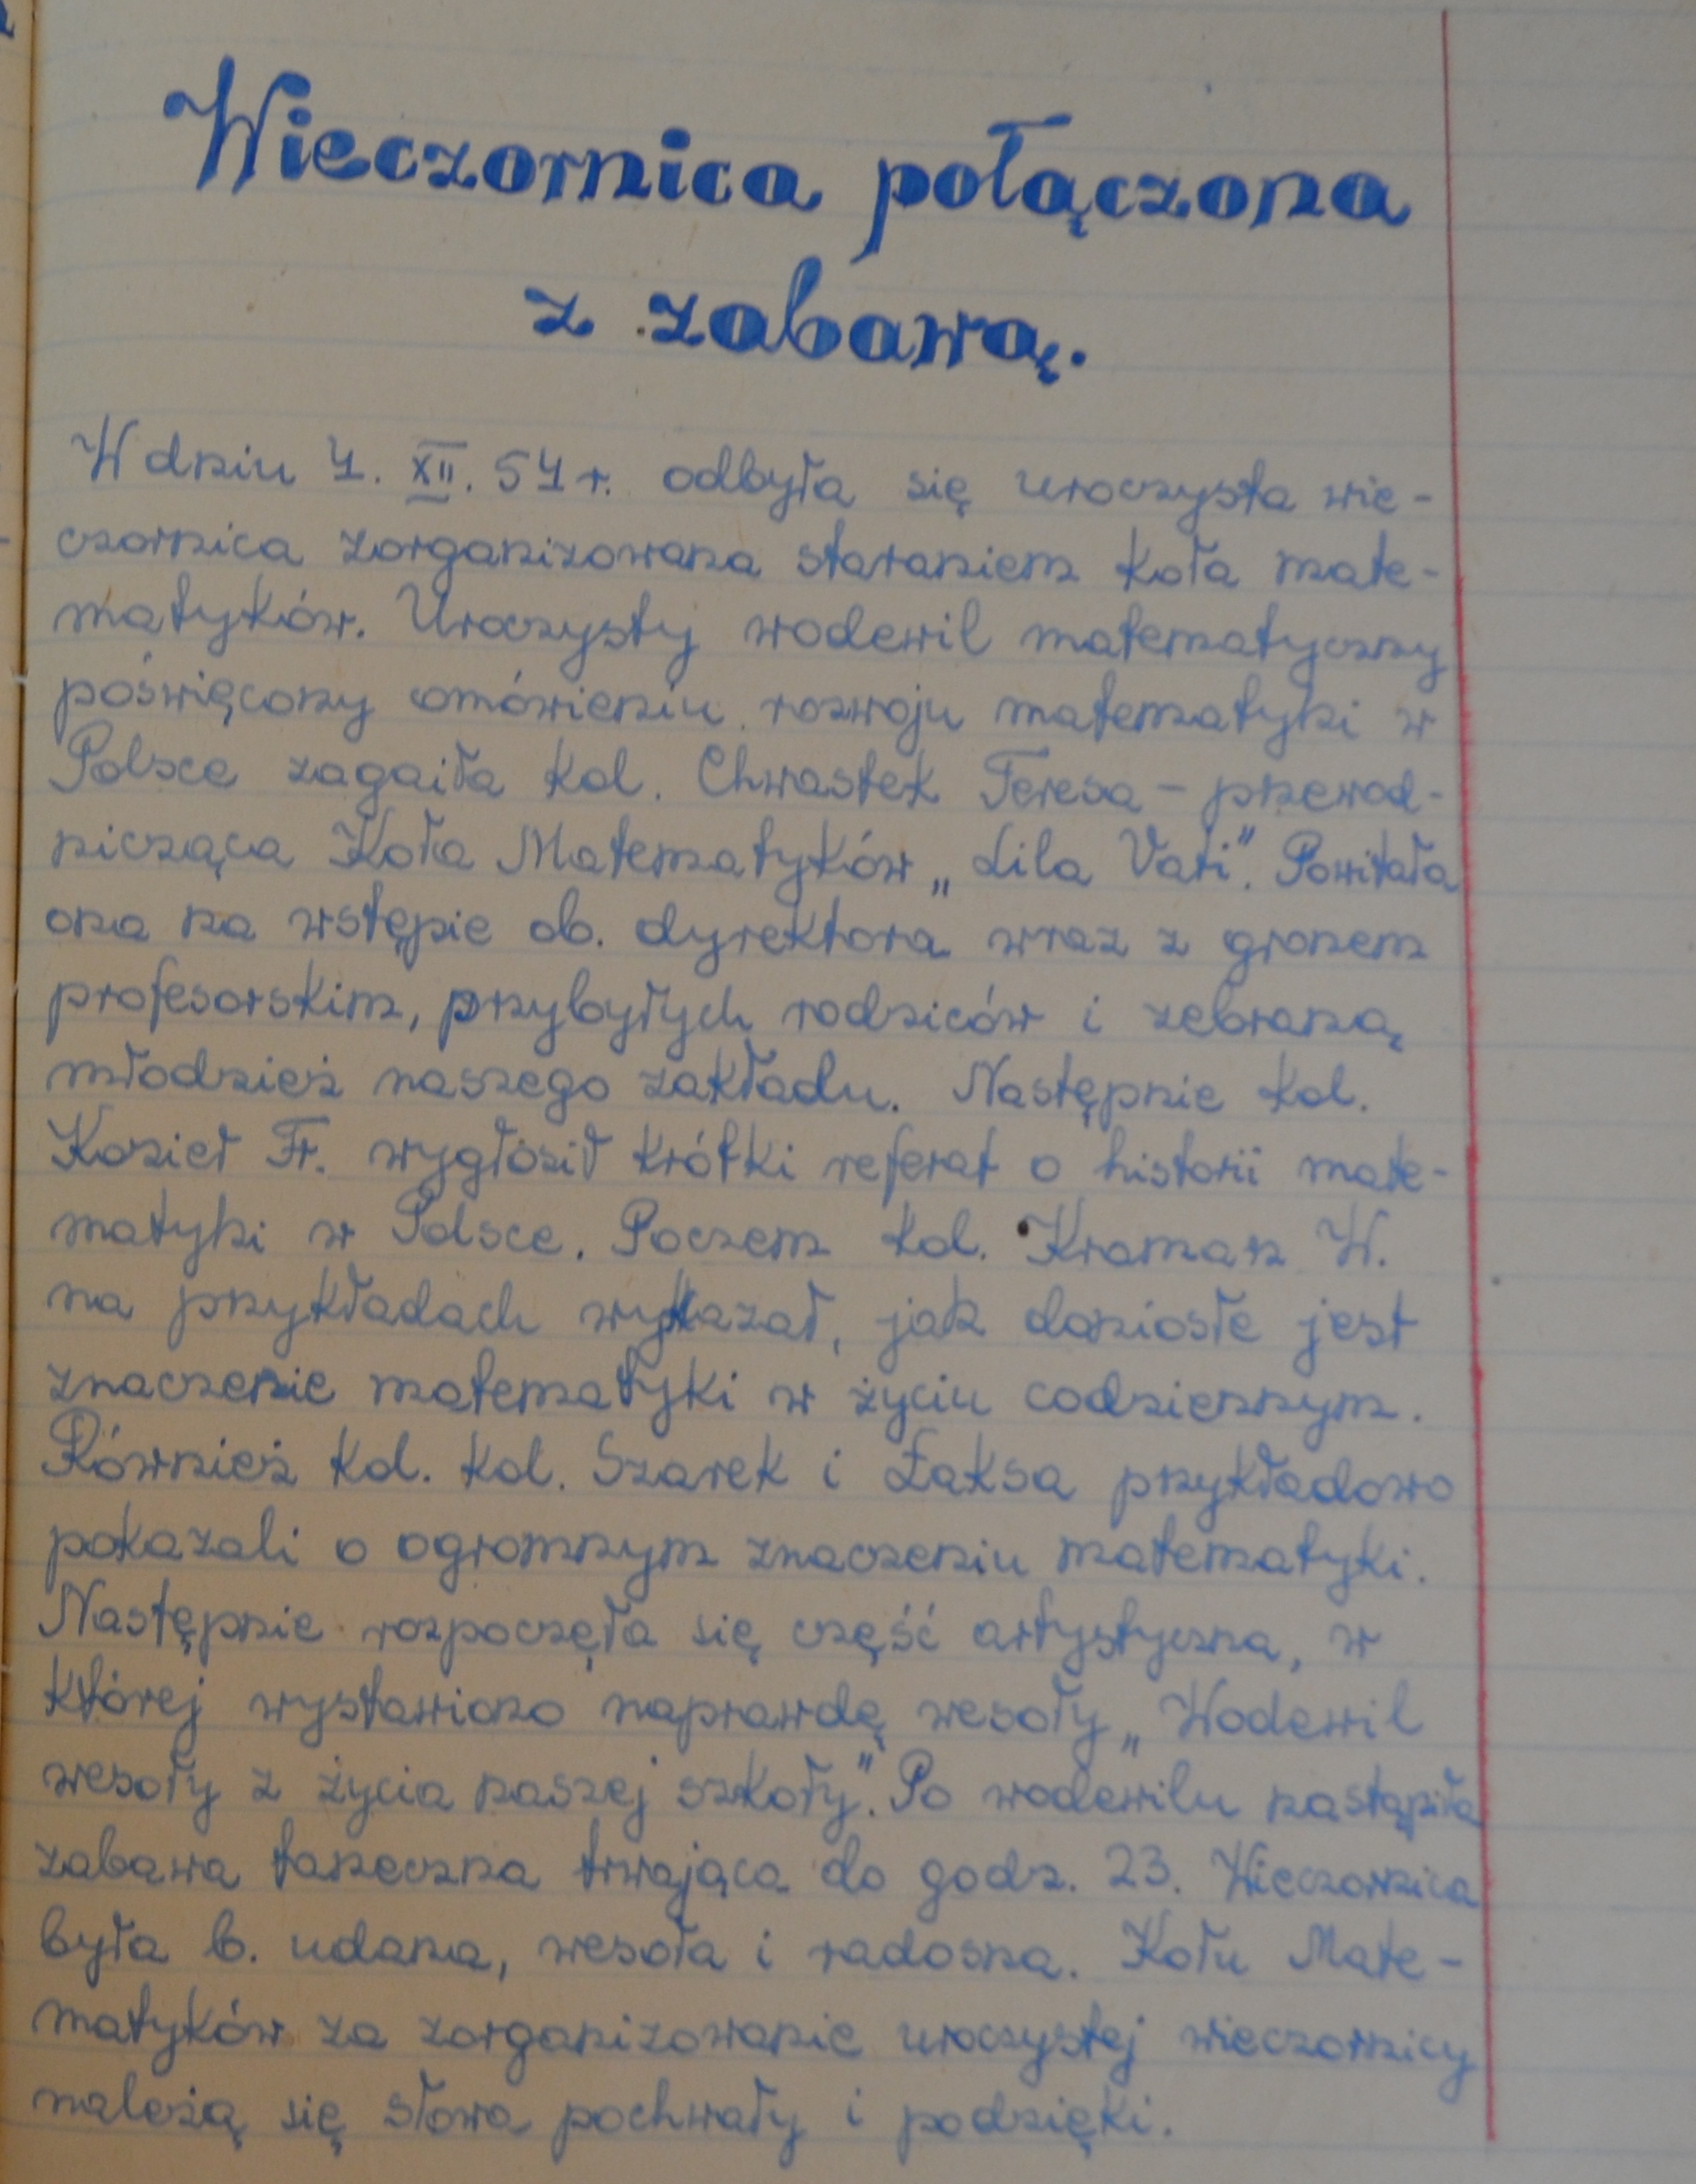 Wieczornica połączona
z zabawą.
W dniu 4. XII. 54 r. odbyła się uroczysta wie-
czornica zorganizowana staraniem koła mate-
matyków. Uroczysty wodewil matematyczny
poświęcony omówieniu rozwoju matematyki w
Polsce zagaiła kol. Chwastek Teresa - przewod-
nicząca Koła Matematyków „Lila Vati". Powitała
ona na wstępie ob. dyrektora wraz z gronem
profesorskim, przybyłych rodziców i zebraną
młodzież naszego zakładu. Następnie kol.
Kozieł Fr. wygłosił krótki referat o historii mate-
matyki w Polsce. Poczem kol. Kraman W.
na przykładach wykazał, jak doniosłe jest
znaczenie matematyki w życiu codziennym.
Również kol. kol. Szarek i Łaksa przykładowo
pokazali o ogromnym znaczeniu matematyki.
Następnie rozpoczęła się część artystyczna, w
której wystawiono naprawdę wesoły „Wodewil
wesoły z życia naszej szkoły". Po wodewilu nastąpiła
zabawa taneczna trwająca do godz. 23. Wieczornica
była b. udana, wesoła i radosna. Kołu Mate-
matyków za zorganizowanie uroczystej wieczornicy
należą się słowa pochwały i podzięki.